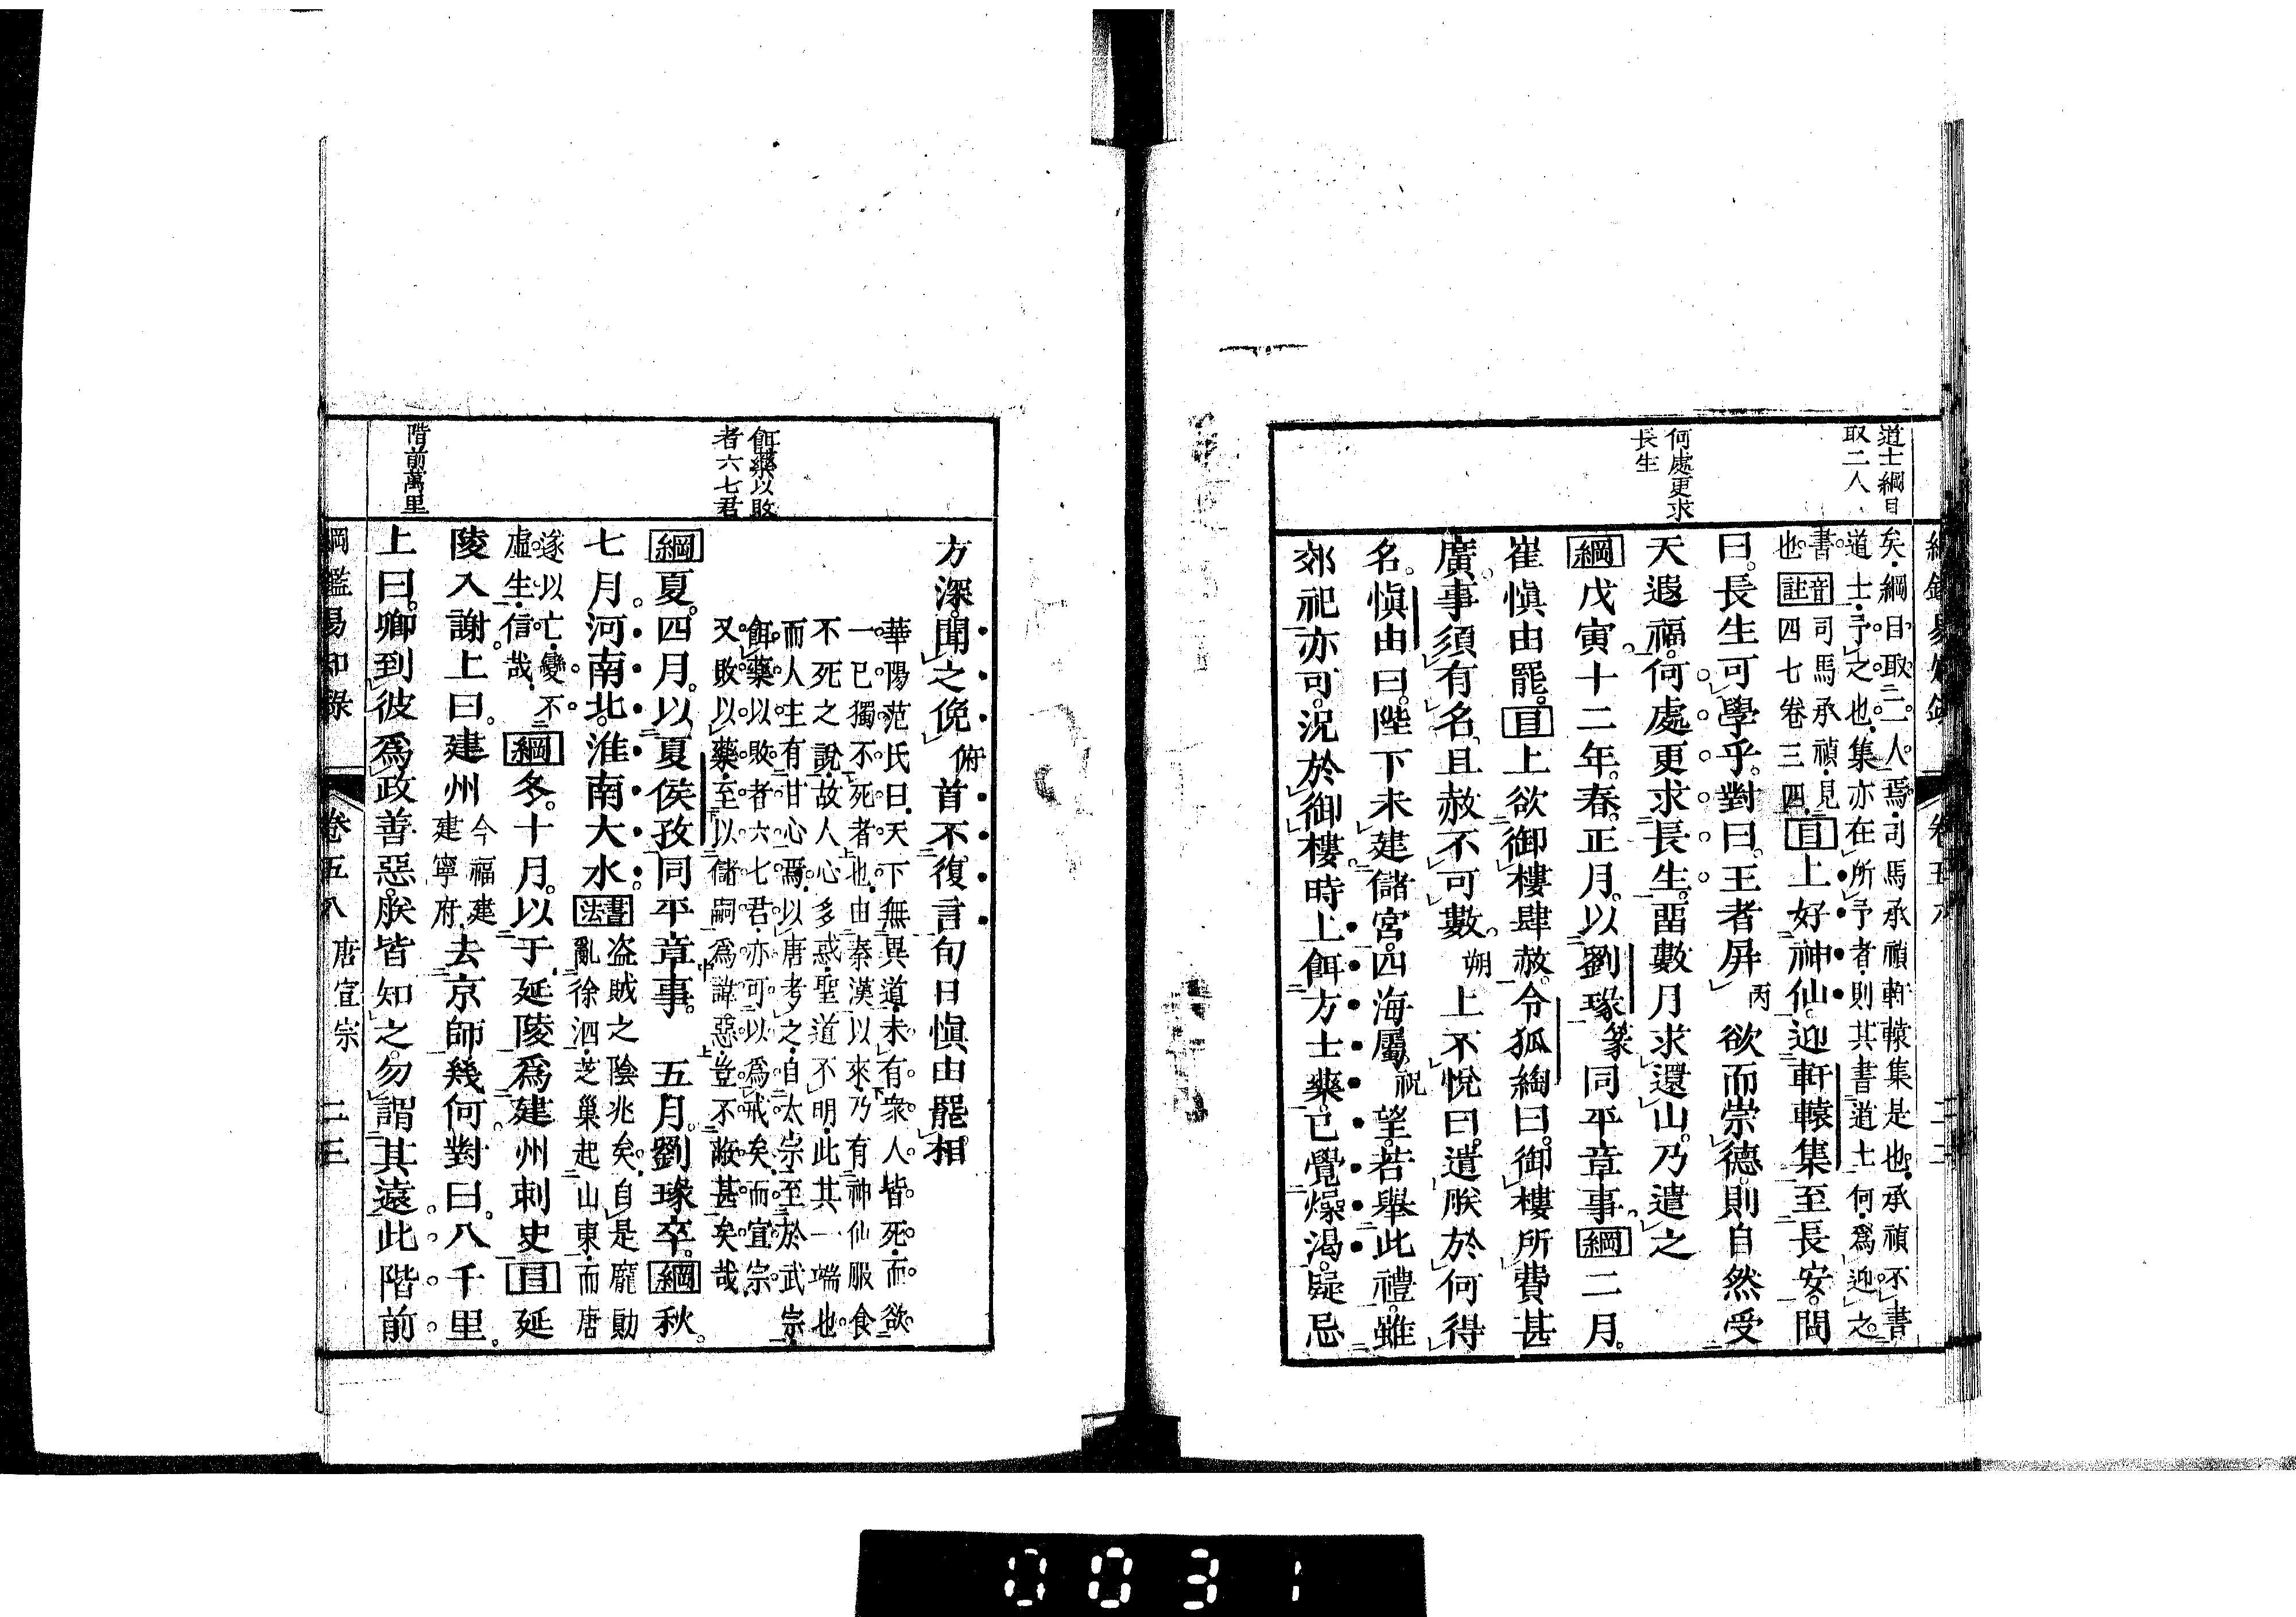 道士綱目
取二人
何處更求
長生
矣綱目取二人焉司馬承禎軒轅集是也承禎不書
道士予之也集亦在所予者則其書道士何爲迎之
書
也 音註 司馬承禎見
四七卷三四 目上好神仙迎軒轅集至長安問
曰長生可學乎對曰王者屏丙欲而崇德則自然受
天遐福何處更求長生畱數月求還山乃遣之
綱戊寅十二年春正月以劉瑑篆同平章事綱二月
崔愼由罷目上欲御樓肆赦令狐綯曰御樓所費甚
廣事須有名且赦不可數朔上不悅曰遣朕於何得
名愼由曰陛下未建儲宮四海屬祝望若舉此禮雖
郊祀亦可況於御樓時上餌方士藥已覺燥渴疑忌
餌藥以敗
者六七君
階前萬里
方深聞之俛俯首不復言旬日愼由罷相
華陽范氏曰天下無異道未有衆人皆死而欲
一己獨不死者也由秦漢以來乃有神仙服食
不死之說故人心多惑聖道不明此其一端也
而人主有甘心焉以唐考之自太宗至於武宗
餌藥以敗者六七君亦可以爲戒矣而宣宗
又敗以藥至以儲嗣爲諱惡豈不蔽甚矣哉
綱夏四月以夏侯孜同平章事 五月劉瑑卒綱秋
七月河南北淮南大水書法 盗賊之陰兆矣自是龐勛
亂徐泗芝巢起山東而唐
遂以亡變不
虛生信哉 綱冬十月以于延陵爲建州刺史目延
陵入謝上曰建州今福建
建寧府去京師幾何對曰八千里
上曰卿到彼爲政善惡朕皆知之勿謂其遠此階前
綱鑑易知錄 卷五八 唐宣宗 二三
0031